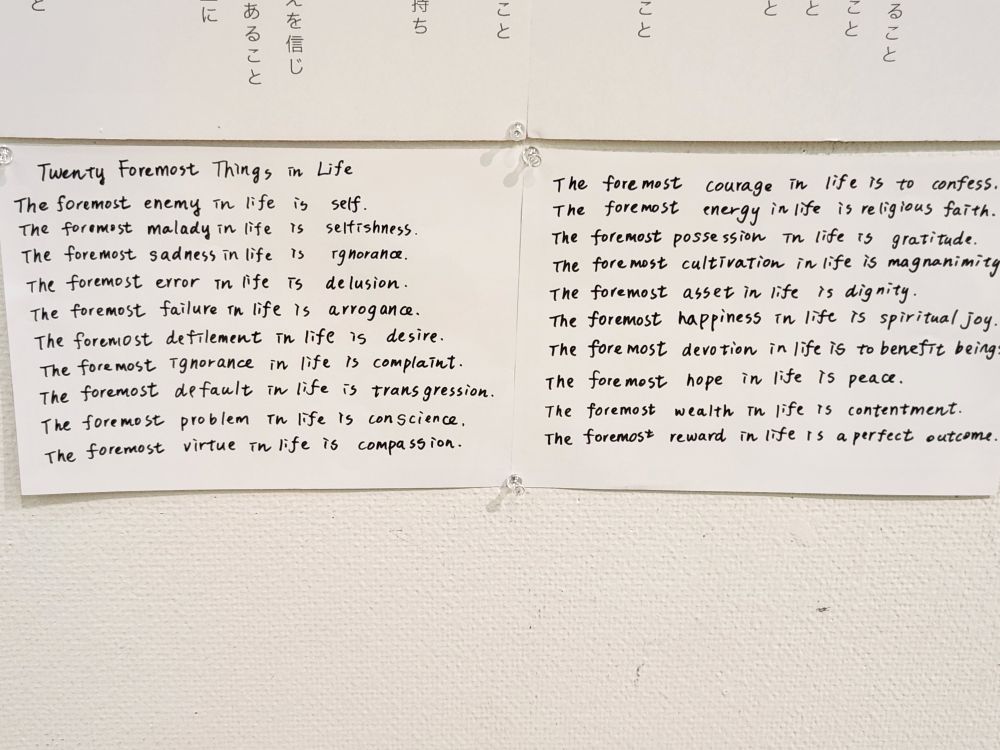 と
に
あること
えを信じ
持ち
こと
こと
と
と
こと
ること
Twenty Foremost Things in Life
The foremost enemy in life is self.
The foremost malady in life is selfishness.
The foremost sadness in life is ignorance.
The foremost error in life is delusion.
The foremost failure in life is arrogance.
The foremost defilement in life is desire.
The foremost ignorance in life is complaint.
The foremost default in life is transgression.
The foremost problem in life is conscience.
The foremost virtue in life is compassion.
The foremost courage in life is to confess.
The foremost energy in life is religious faith.
The foremost possession in life is gratitude.
The foremost cultivation in life is magnanimity
The foremost asset in life is dignity.
The foremost happiness in life is spiritual joy.
The foremost devotion in life is to benefit beings
The foremost hope in life is peace.
The foremost wealth in life is contentment.
The foremost reward in life is a perfect outcome.